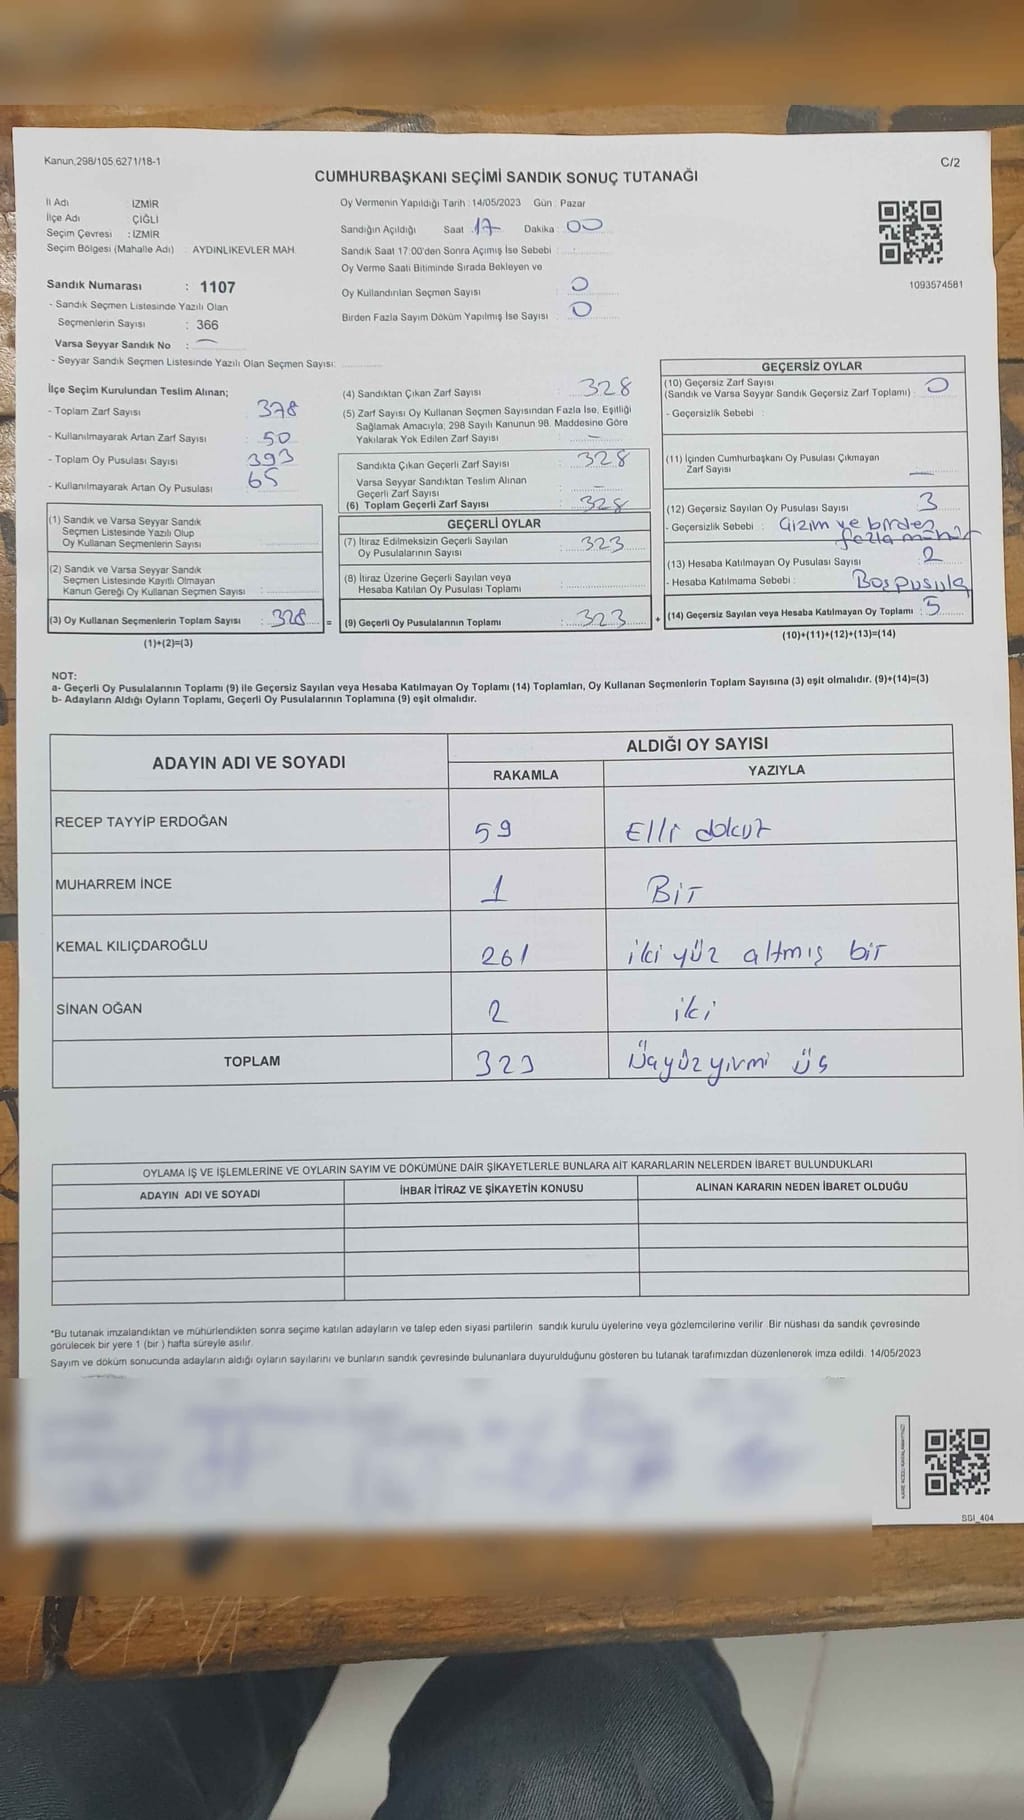 Kanun.298/105.6271/18-1
C/2
CUMHURBAŞKANI SEÇİMİ SANDIK SONUÇ TUTANAĞI
İl Adı : İZMİR
İlçe Adı : ÇİĞLİ
Seçim Çevresi : İZMİR
Seçim Bölgesi (Mahalle Adı) : AYDINLIKEVLER MAH.
Oy Vermenin Yapıldığı Tarih : 14/05/2023 Gün : Pazar
Sandığın Açıldığı Saat : 17 Dakika : 00
Sandık Saat 17:00'den Sonra Açımış İse Sebebi :
Oy Verme Saati Bitiminde Sırada Bekleyen ve
Oy Kullandırılan Seçmen Sayısı : 0
Birden Fazla Sayım Döküm Yapılmış İse Sayısı : 0
1093574581
Sandık Numarası : 1107
- Sandık Seçmen Listesinde Yazılı Olan
Seçmenlerin Sayısı : 366
Varsa Seyyar Sandık No : —
- Seyyar Sandık Seçmen Listesinde Yazılı Olan Seçmen Sayısı:
İlçe Seçim Kurulundan Teslim Alınan;
- Toplam Zarf Sayısı : 378
- Kullanılmayarak Artan Zarf Sayısı : 50
- Toplam Oy Pusulası Sayısı : 393
- Kullanılmayarak Artan Oy Pusulası : 65
(1) Sandık ve Varsa Seyyar Sandık
Seçmen Listesinde Yazılı Olup
Oy Kullanan Seçmenlerin Sayısı :
(2) Sandık ve Varsa Seyyar Sandık
Seçmen Listesinde Kayıtlı Olmayan
Kanun Gereği Oy Kullanan Seçmen Sayısı :
(3) Oy Kullanan Seçmenlerin Toplam Sayısı : 328 =
(1)+(2)=(3)
(4) Sandıktan Çıkan Zarf Sayısı : 328
(5) Zarf Sayısı Oy Kullanan Seçmen Sayısından Fazla İse, Eşitliği
Sağlamak Amacıyla; 298 Sayılı Kanunun 98. Maddesine Göre
Yakılarak Yok Edilen Zarf Sayısı : —
Sandıkta Çıkan Geçerli Zarf Sayısı : 328
Varsa Seyyar Sandıktan Teslim Alınan
Geçerli Zarf Sayısı : —
(6) Toplam Geçerli Zarf Sayısı : 328
GEÇERLİ OYLAR
(7) İtiraz Edilmeksizin Geçerli Sayılan
Oy Pusulalarının Sayısı : 323
(8) İtiraz Üzerine Geçerli Sayılan veya
Hesaba Katılan Oy Pusulası Toplamı :
(9) Geçerli Oy Pusulalarının Toplamı : 323 +
GEÇERSİZ OYLAR
(10) Geçersiz Zarf Sayısı
(Sandık ve Varsa Seyyar Sandık Geçersiz Zarf Toplamı) : 0
- Geçersizlik Sebebi :
(11) İçinden Cumhurbaşkanı Oy Pusulası Çıkmayan
Zarf Sayısı : —
(12) Geçersiz Sayılan Oy Pusulası Sayısı : 3
- Geçersizlik Sebebi : Çizim ve birden
fazla mühür
(13) Hesaba Katılmayan Oy Pusulası Sayısı : 2
- Hesaba Katılmama Sebebi : Boş pusula
(14) Geçersiz Sayılan veya Hesaba Katılmayan Oy Toplamı : 5
(10)+(11)+(12)+(13)=(14)
NOT:
a- Geçerli Oy Pusulalarının Toplamı (9) ile Geçersiz Sayılan veya Hesaba Katılmayan Oy Toplamı (14) Toplamları, Oy Kullanan Seçmenlerin Toplam Sayısına (3) eşit olmalıdır. (9)+(14)=(3)
b- Adayların Aldığı Oyların Toplamı, Geçerli Oy Pusulalarının Toplamına (9) eşit olmalıdır.
ADAYIN ADI VE SOYADI
ALDIĞI OY SAYISI
RAKAMLA YAZIYLA
RECEP TAYYİP ERDOĞAN 59 Elli dokuz
MUHARREM İNCE 1 Bir
KEMAL KILIÇDAROĞLU 261 iki yüz altmış bir
SİNAN OĞAN 2 iki
TOPLAM 323 Üçyüzyirmi üç
OYLAMA İŞ VE İŞLEMLERİNE VE OYLARIN SAYIM VE DÖKÜMÜNE DAİR ŞİKAYETLERLE BUNLARA AİT KARARLARIN NELERDEN İBARET BULUNDUKLARI
ADAYIN ADI VE SOYADI İHBAR İTİRAZ VE ŞİKAYETİN KONUSU ALINAN KARARIN NEDEN İBARET OLDUĞU
*Bu tutanak imzalandıktan ve mühürlendikten sonra seçime katılan adayların ve talep eden siyasi partilerin sandık kurulu üyelerine veya gözlemcilerine verilir. Bir nüshası da sandık çevresinde
görülecek bir yere 1 (bir ) hafta süreyle asılır.
Sayım ve döküm sonucunda adayların aldığı oyların sayılarını ve bunların sandık çevresinde bulunanlara duyurulduğunu gösteren bu tutanak tarafımızdan düzenlenerek imza edildi. 14/05/2023
SGI_404